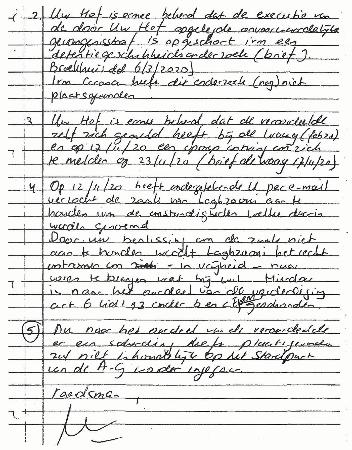 2. Uw Hof is ermee bekend dat de executie van
de door Uw Hof opgelegde onvoorwaardelijke
gevangenisstraf is opgeschort ivm een
detentiegeschiktheidsonderzoek (brief
6/3/2020)
Ivm Corona heeft die onderzoek (nog) niet
plaatsgevonden
3. Uw Hof is ermee bekend dat de veroordeelde
zelf zich gemeld heeft bij de
en op 12/11/20 een oproep om zich
te melden op 23/11/20 (brief 12/11/20)
4. Op 12/11/20 heeft ondergetekende U per e-mail
verzocht de zaak van Laghzaoui aan te
houden om de omstandigheden welke daarin
werden genoemd
Door uw beslissing om de zaak niet
aan te houden wordt Laghzaoui het recht
ontnomen om - in vrijheid - naar
voren te brengen wat hij wil
is naar het oordeel van de verdediging
art. 6 lid 1 3 onder b en c EVRM geschonden
5 Nu naar het oordeel van de veroordeelde
er een schending heeft plaatsgevonden
zal niet inhoudelijk op het standpunt
van de A-G worden ingegaan
raadsman